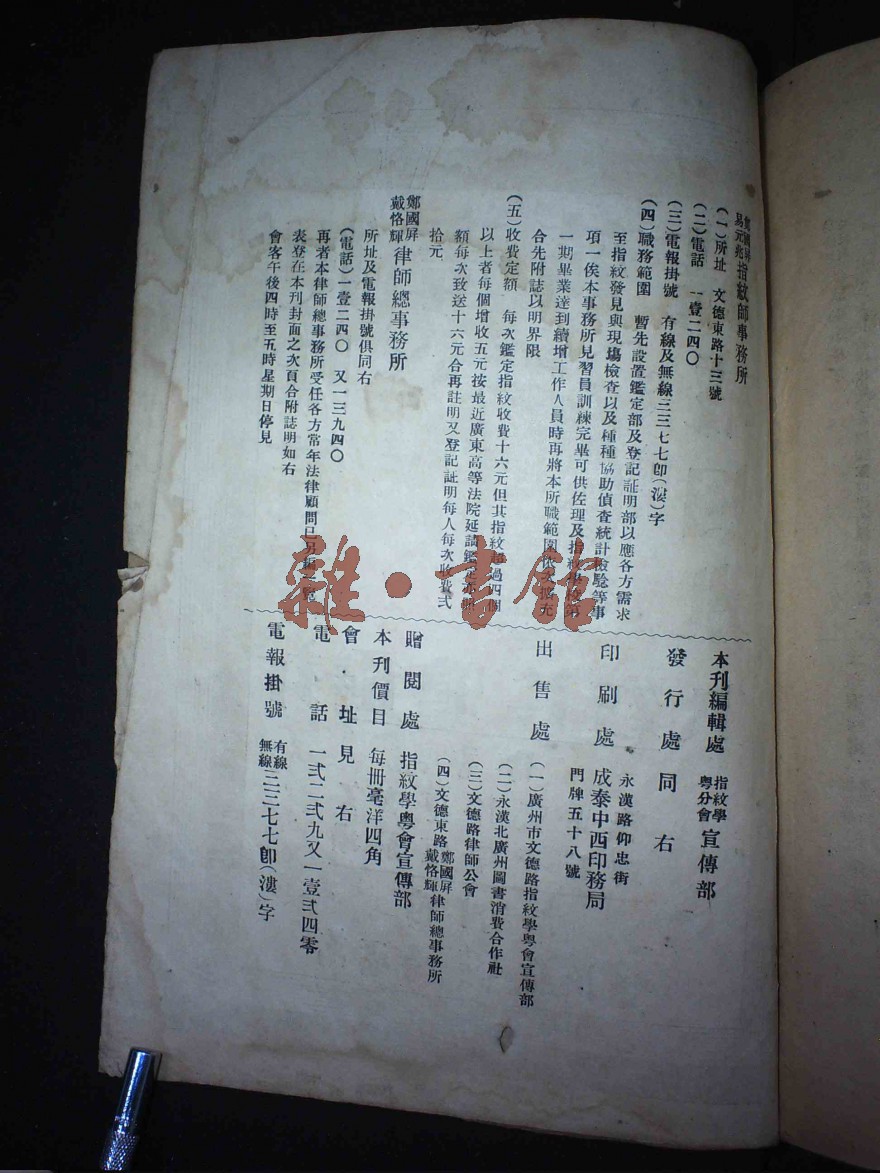 鄭國屏
易元兆
指紋師事務所
(一)所址　文德東路十三號
(二)電話　一壹二四〇
(三)電報掛號　有線及無線三三七七卽(淒)字
(四)職務範圍　暫先設置鑑定部及登記証明部以應各方需求
至指紋發見與現塲檢查以及種種協助偵查統計檢驗等事
項一俟本事務所見習員訓練完畢可供佐理及指紋
一期畢業達到續增工作人員時再將本所職範圍
合先附誌以明界限
(五)收費定額　每次鑑定指紋收費十六元但其指紋超過四個
以上者每個增收五元按最近廣東高等法院延請鑑定
額每次致送十六元合再註明又登記証明每人每次收費弍
拾元
鄭國屏
戴恪輝
律師總事務所
所址及電報掛號俱同右
(電話)一壹二四〇　又一三九四〇
再者本律師總事務所受任各方常年法律顧問已另
表登在本刊封面之次頁合附誌明如右
會客午後四時至五時星期日停見
本刊編輯處　指紋學粵分會宣傳部
發行處同右
印刷處　永漢路仰忠街
成泰中西印務局
門牌五十八號
出售處　(一)廣州市文德路指紋學粵會宣傳部
(二)永漢北廣州圖書消費合作社
(三)文德路律師公會
(四)文德東路鄭國屏戴恪輝律師總事務所
贈閱處　指紋學粵會宣傳部
本刊價目　每冊毫洋四角
會·址見右
電話　一弍二弍九又一壹弍四零
電報掛號　有線無線三三七七卽(淒)字
雜·書館